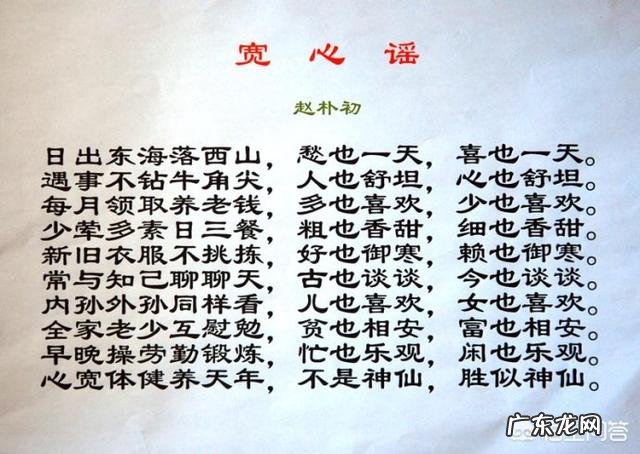 宽心谣
赵朴初
日出东海落西山，愁也一天，喜也一天。
遇事不钻牛角尖，人也舒坦，心也舒坦。
每月领取养老钱，多也喜欢，少也喜欢。
少荤多素日三餐，粗也香甜，细也香甜。
新旧衣服不挑拣，好也御寒，赖也御寒。
常与知己聊聊天，古也谈谈，今也谈谈。
内孙外孙同样看，儿也喜欢，女也喜欢。
全家老少互慰勉，贫也相安，富也相安。
早晚操劳勤锻炼，忙也乐观，闲也乐观。
心宽体健养天年，不是神仙，胜似神仙。
广东龙网